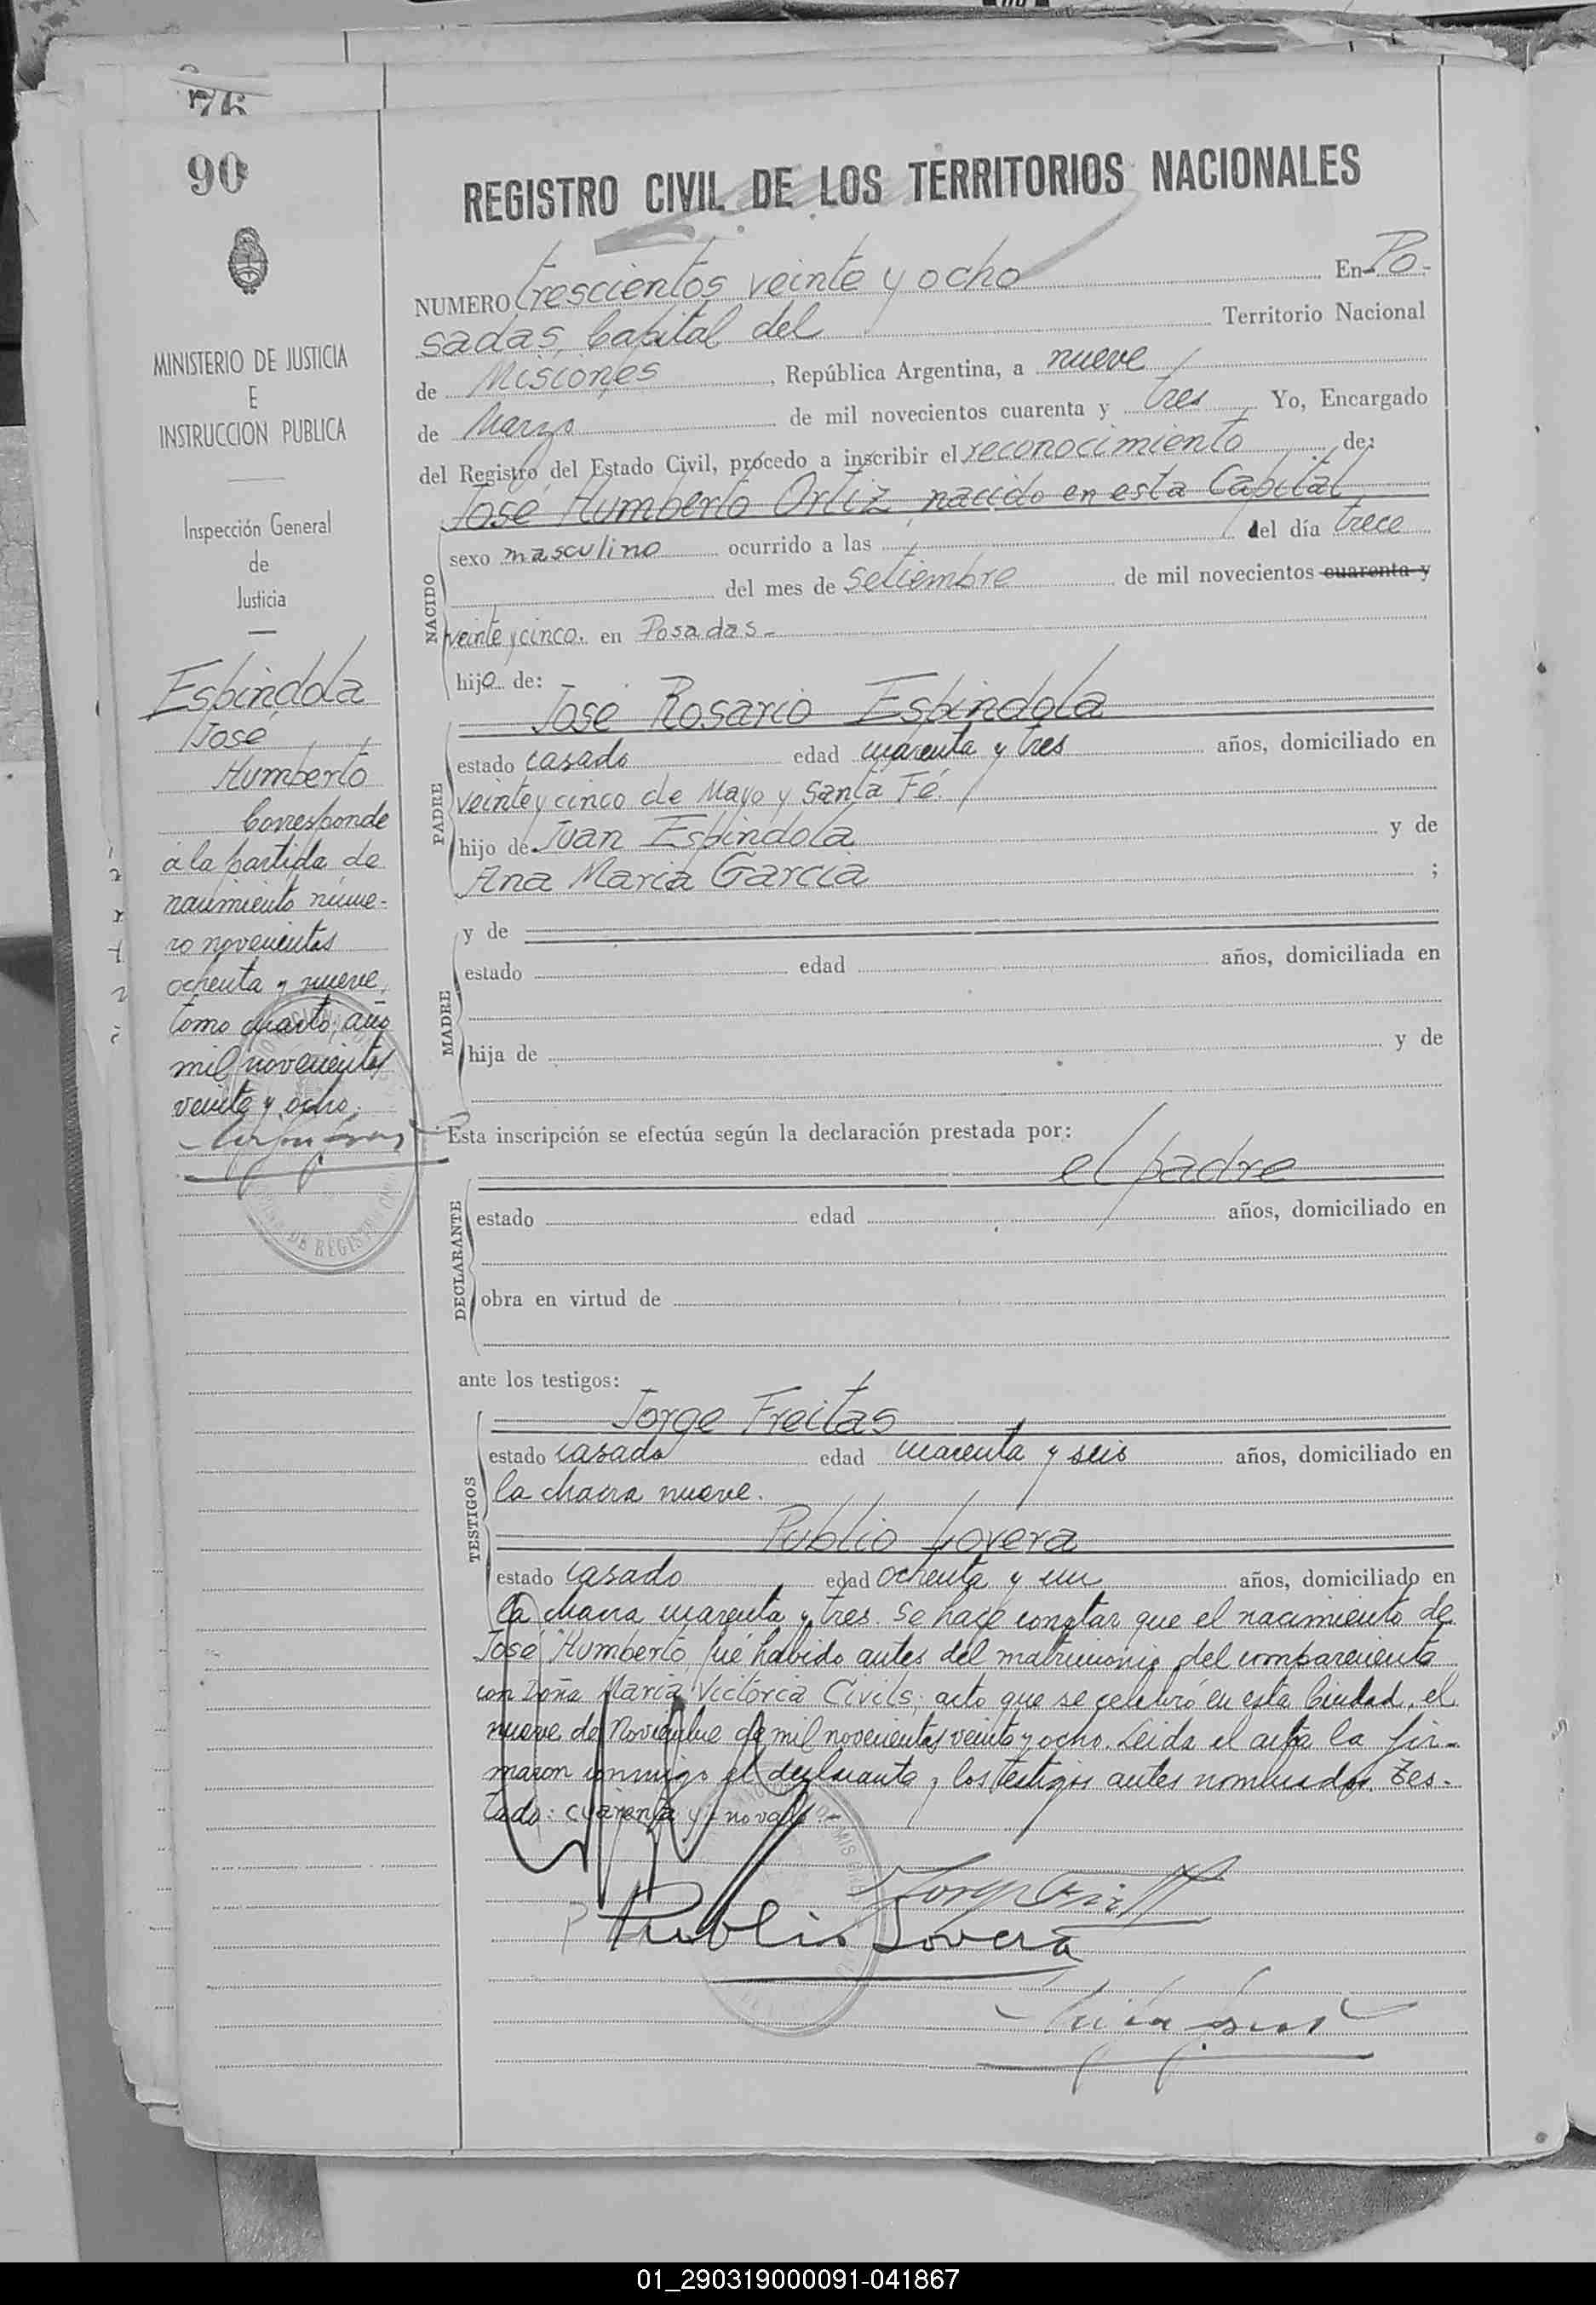 76
90
REGISTRO CIVIL DE LOS TERRITORIOS NACIONALES
NUMERO trescientos veinte y ocho En Po-
sadas, Capital del Territorio Nacional
de Misiones, República Argentina, a nueve
de Marzo de mil novecientos cuarenta y tres Yo, Encargado
del Registro del Estado Civil, procedo a inscribir el reconocimiento de:
José Humberto Ortiz, nacido en esta Capital,
NACIDO
sexo masculino ocurrido a las del día trece
del mes de setiembre de mil novecientos cuarenta y
veinte y cinco. en Posadas.-
hijo de:
José Rosario Espindola
PADRE
estado casado edad cuarenta y tres años, domiciliado en
veinte y cinco de Mayo y Santa Fé.
hijo de Juan Espindola y de
Ana María García ;
MADRE
y de
estado edad años, domiciliada en
hija de y de
Esta inscripción se efectúa según la declaración prestada por:
el padre
DECLARANTE
estado edad años, domiciliado en
obra en virtud de
ante los testigos:
TESTIGOS
Jorge Freitas
estado casado edad cuarenta y seis años, domiciliado en
la chacra nueve.
Publio Lovera
estado casado edad ochenta y un años, domiciliado en
la chacra cuarenta y tres. Se hace constar que el nacimiento de
José Humberto fué habido antes del matrimonio del compareciente
con Doña María Victorca Civils, acto que se celebró en esta Ciudad, el
nueve de Noviembre de mil novecientos veinte y ocho. Leida el acta la fir-
maron conmigo el declarante y los testigos antes nombrados. Tes-
tado: cuarenta y - no vale.-
Publio Lovera
MINISTERIO DE JUSTICIA
E
INSTRUCCION PUBLICA
Inspección General
de
Justicia
Espindola
José
Humberto
Corresponde
a la partida de
nacimiento núme-
ro novecientos
ochenta y nueve,
tomo cuarto, año
mil novecientos
veinte y ocho.
01_290319000091-041867